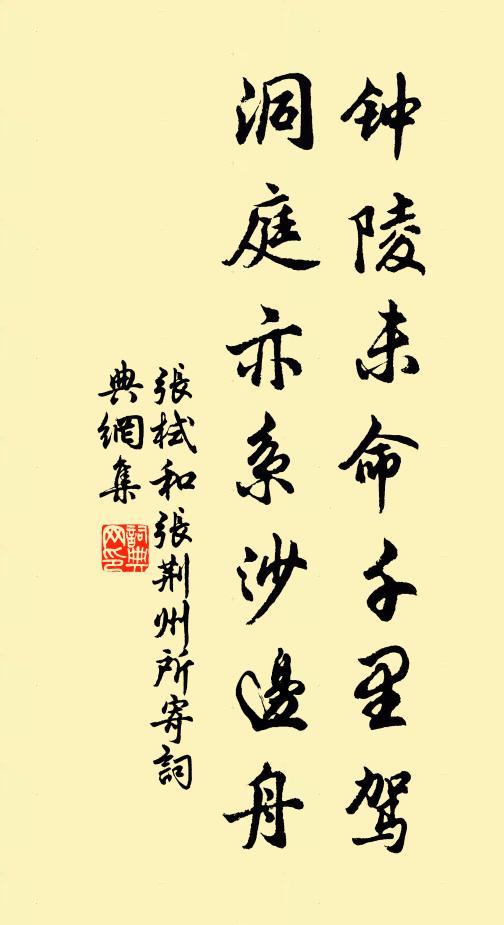 钟陵未命千里驾
洞庭亦系沙邊舟
張栻和張荆州所寄詞
典網集
詞典網印